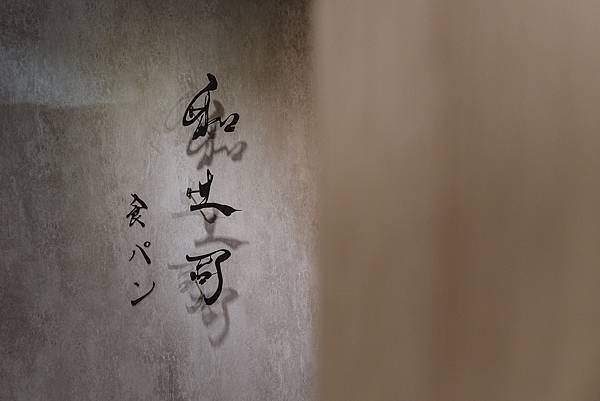 和生司
食パン